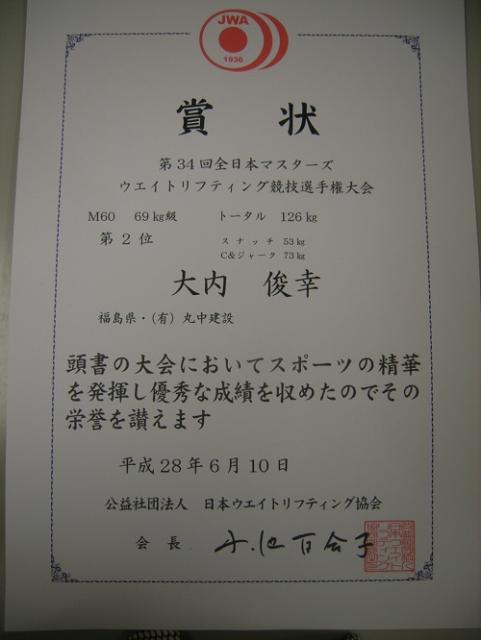 JWA
1936
賞　状
第34回全日本マスターズ
ウエイトリフティング競技選手権大会
M60　69㎏級　トータル　126㎏
第2位　スナッチ　53㎏
C&ジャーク　73㎏
大内　俊幸
福島県・（有）丸中建設
頭書の大会においてスポーツの精華
を発揮し優秀な成績を収めたのでその
栄誉を讃えます
平成28年6月10日
公益社団法人　日本ウエイトリフティング協会
会長